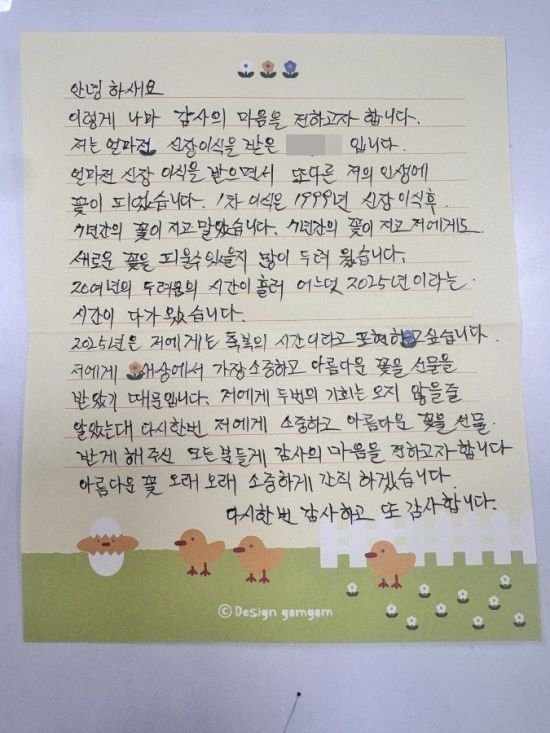 안녕 하세요
이렇게 나마 감사의 마음을 전하고자 합니다.
저는 얼마전 신장이식을 받은 입니다.
얼마전 신장 이식을 받으면서 또다른 저의 인생에
꽃이 피었습니다. 1차 이식은 1999년 신장 이식후
7년간의 꽃이 지고 말았습니다. 7년간의 꽃이 지고 저에게도
새로운 꽃을 피울수 있을지 많이 두려 웠습니다.
20여년의 두려움의 시간이 흘러 어느덧 2025년 이라는
시간이 다가 왔습니다.
2025년은 저에게는 축복의 시간이라고 표현하고싶습니다.
저에게 세상에서 가장 소중하고 아름다운 꽃을 선물을
받았기 때문입니다. 저에게 두번의 기회는 오지 않을줄
알았는대 다시한번 저에게 소중하고 아름다운 꽃을 선물
받게 해 주신 모든 분들게 감사의 마음을 전하고자 합니다
아름다운 꽃 오래 오래 소중하게 간직 하겠습니다.
다시한번 감사하고 또 감사합니다.
©Design gomgom